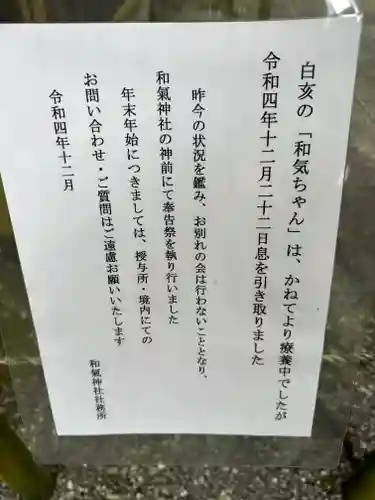 白亥の「和気ちゃん」は、かねてより療養中でしたが
令和四年十二月二十二日息を引き取りました
昨今の状況を鑑み、お別れの会は行わないこととなり、
和氣神社の神前にて奉告祭を執り行いました
年末年始につきましては、授与所・境内にての
お問い合わせ・ご質問はご遠慮お願いいたします
令和四年十二月
和氣神社社務所